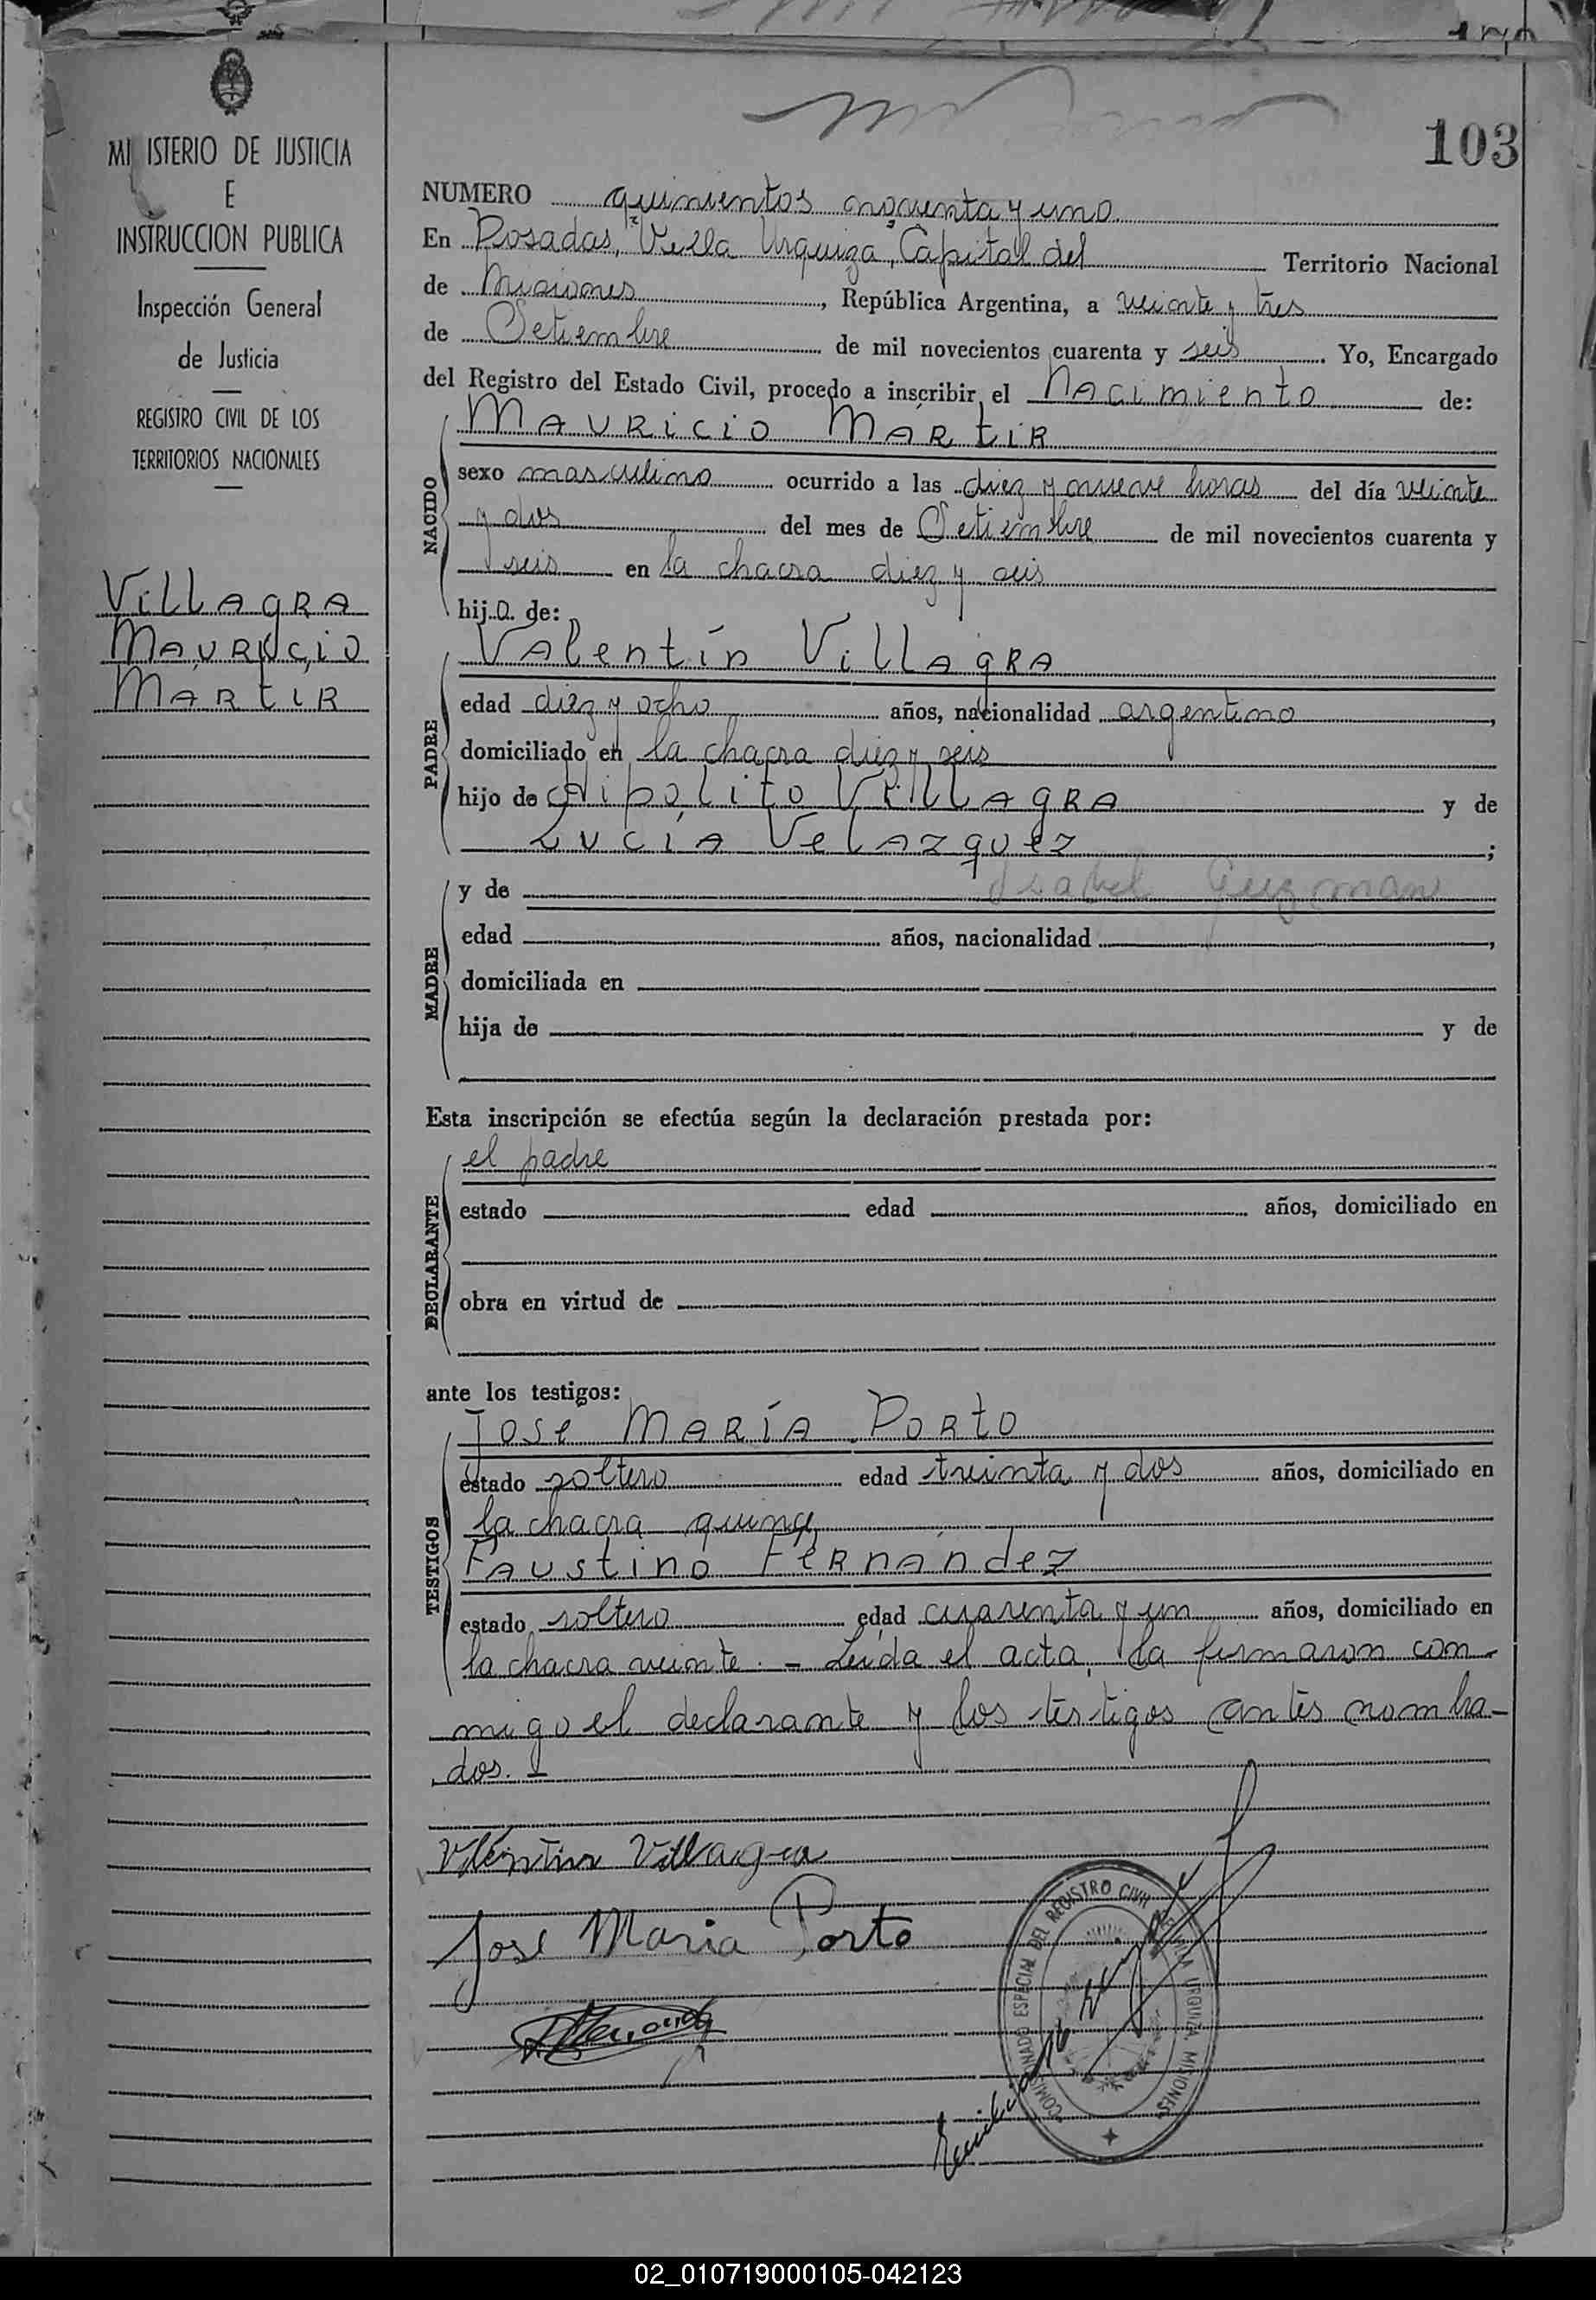 103
MI ISTERIO DE JUSTICIA
E
INSTRUCCION PUBLICA
Inspección General
de Justicia
REGISTRO CIVIL DE LOS
TERRITORIOS NACIONALES
VILLAGRA
MAURICIO
MARTIR
NUMERO quinientos noventa y uno
En Posadas, Villa Urquiza, Capital del Territorio Nacional
de Misiones, República Argentina, a veinte y tres
de Setiembre de mil novecientos cuarenta y seis. Yo, Encargado
del Registro del Estado Civil, procedo a inscribir el Nacimiento de:
NACIDO
MAURICIO MÁRTIR
sexo masculino ocurrido a las diez y nueve horas del día veinte
y dos del mes de Setiembre de mil novecientos cuarenta y
seis en la chacra diez y seis
hijo de:
PADRE
Valentín VILLAGRA
edad diez y ocho años, nacionalidad argentino,
domiciliado en la chacra diez y seis
hijo de Hipólito VILLAGRA y de
Lucía Velazquez;
MADRE
y de Isabel Guzman
edad años, nacionalidad ,
domiciliada en
hija de y de
Esta inscripción se efectúa según la declaración prestada por:
DECLARANTE
el padre
estado edad años, domiciliado en
obra en virtud de
ante los testigos:
TESTIGOS
José MARÍA PORTO
estado soltero edad treinta y dos años, domiciliado en
la chacra quince
FAUSTINO FERNÁNDEZ
estado soltero edad cuarenta y un años, domiciliado en
la chacra veinte. - Leída el acta, la firmaron con-
migo el declarante y los testigos antes nombra-
dos. -
Valentin Villagra
José Maria Porto
COMISIONADO ESPECIAL DEL REGISTRO CIVIL VILLA URQUIZA MISIONES
02_010719000105-042123